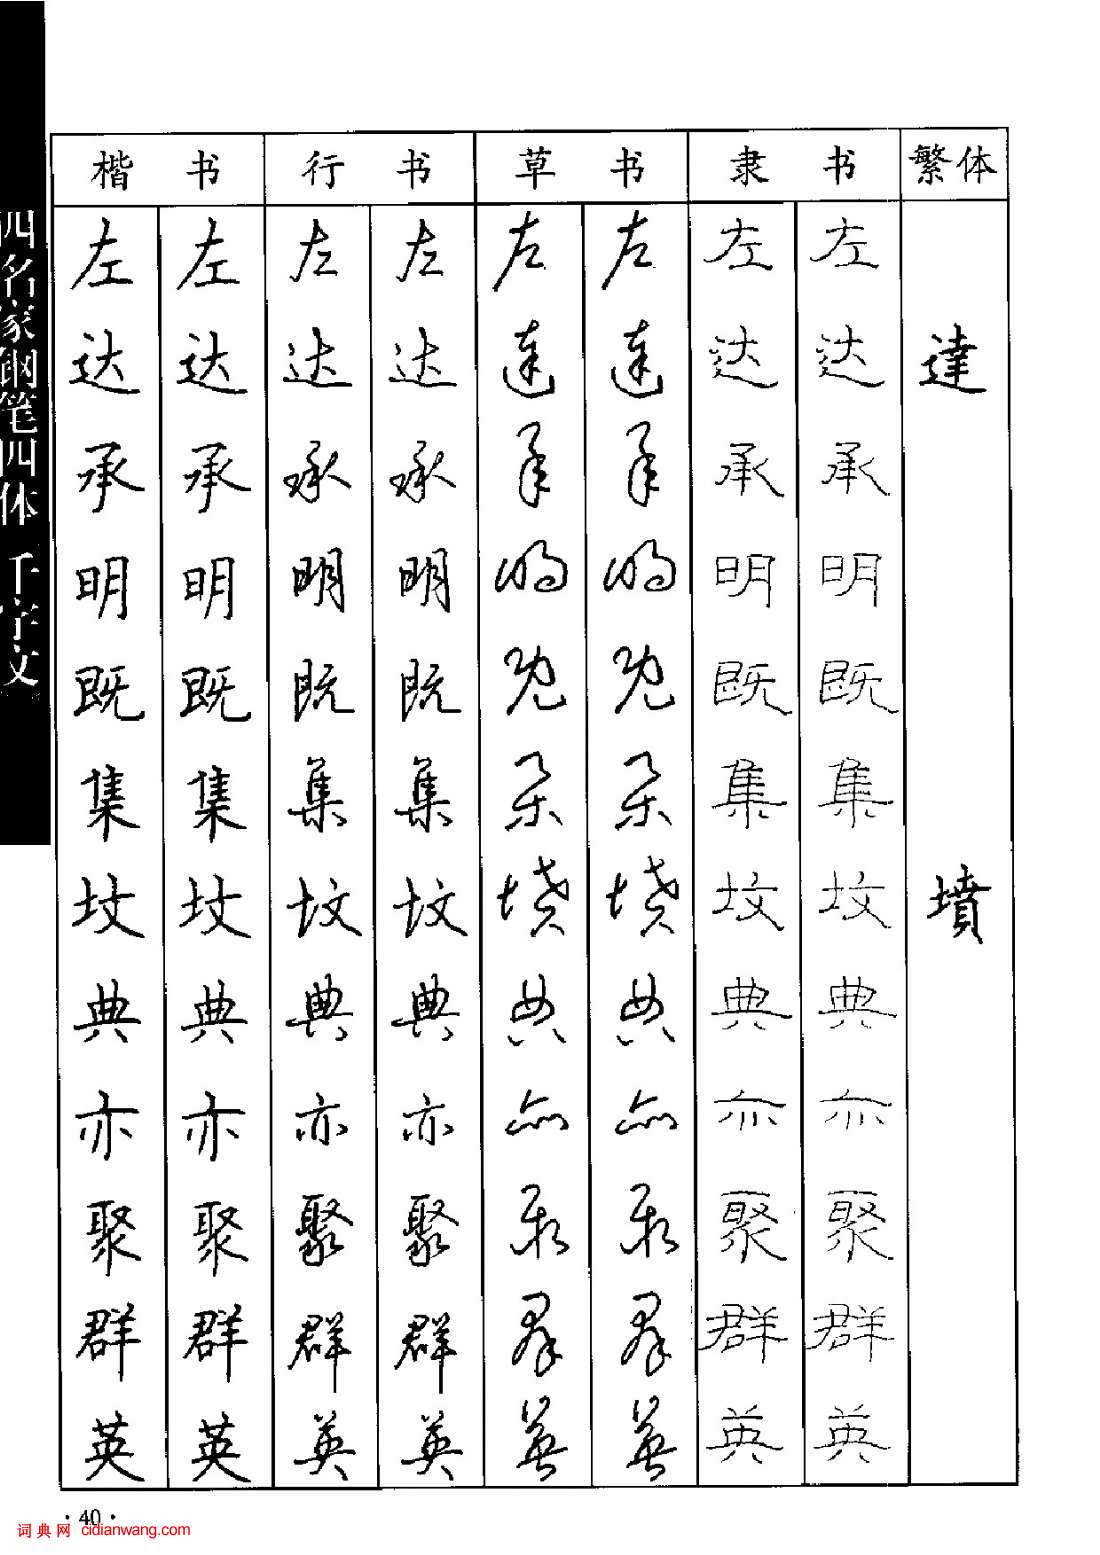 四名家钢笔四体千字文
楷书 行书 草书 隶书 繁体
左 左 左 左 左 左 左 左
达 达 达 达 达 达 达 达 達
承 承 承 承 承 承 承 承
明 明 明 明 明 明 明 明
既 既 既 既 既 既 既 既
集 集 集 集 集 集 集 集
坟 坟 坟 坟 墳 墳 坟 坟 墳
典 典 典 典 典 典 典 典
亦 亦 亦 亦 亦 亦 亦 亦
聚 聚 聚 聚 聚 聚 聚 聚
群 群 群 群 群 群 群 群
英 英 英 英 英 英 英 英
·40·
词典网 cidianwang.com